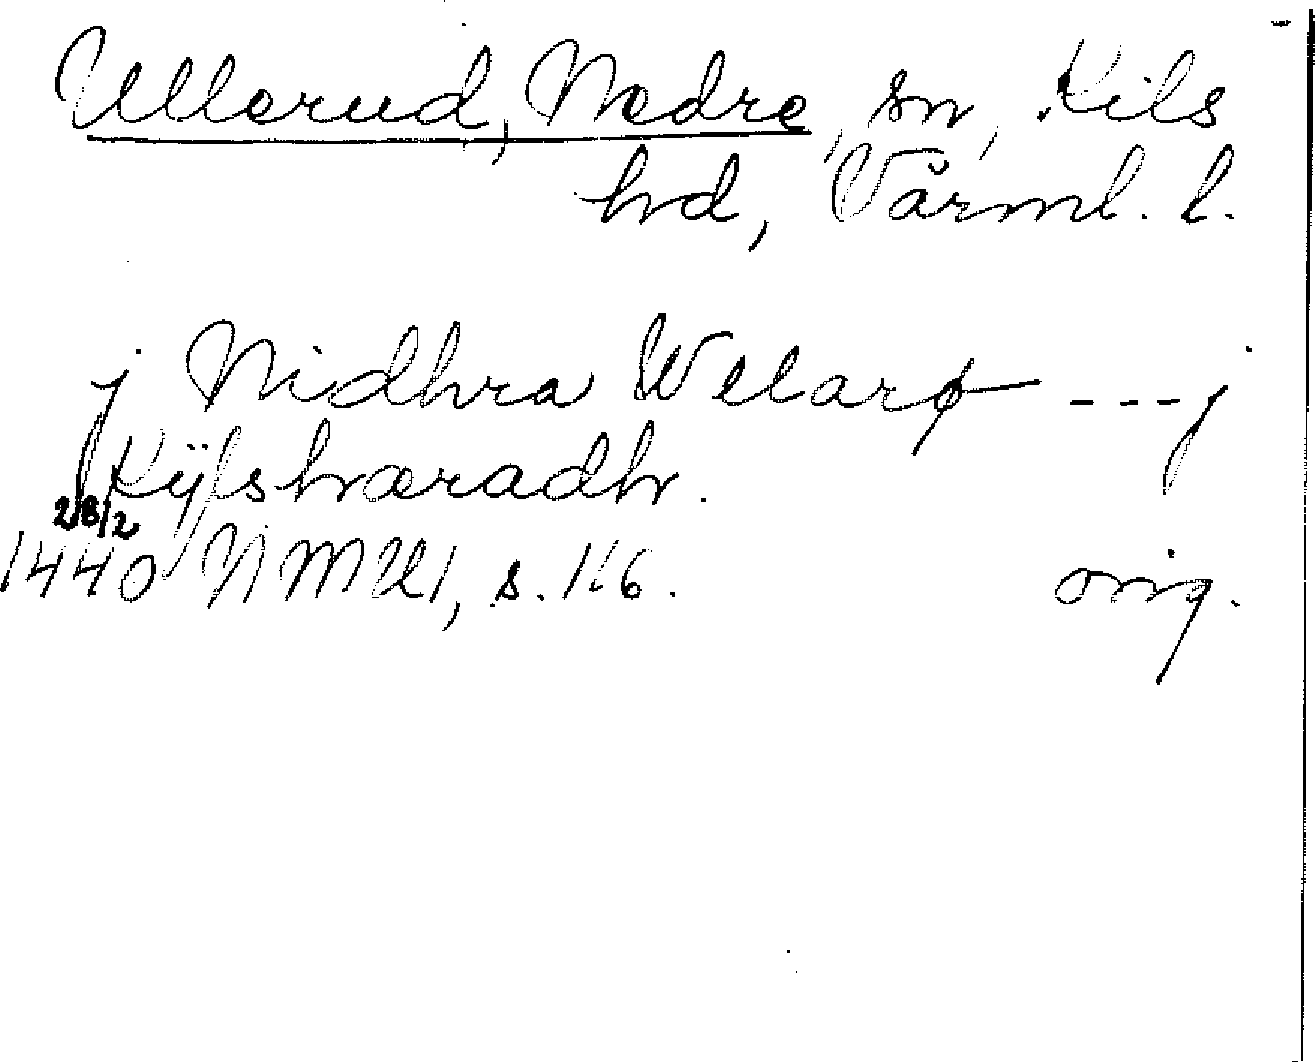 Ullerud, Nedre, sn, Kils
hd, Värml. l.
j Nidhra Wlla --- j
Kÿlshæradh.
28/2
1440 NMU1, s. 116. orig.